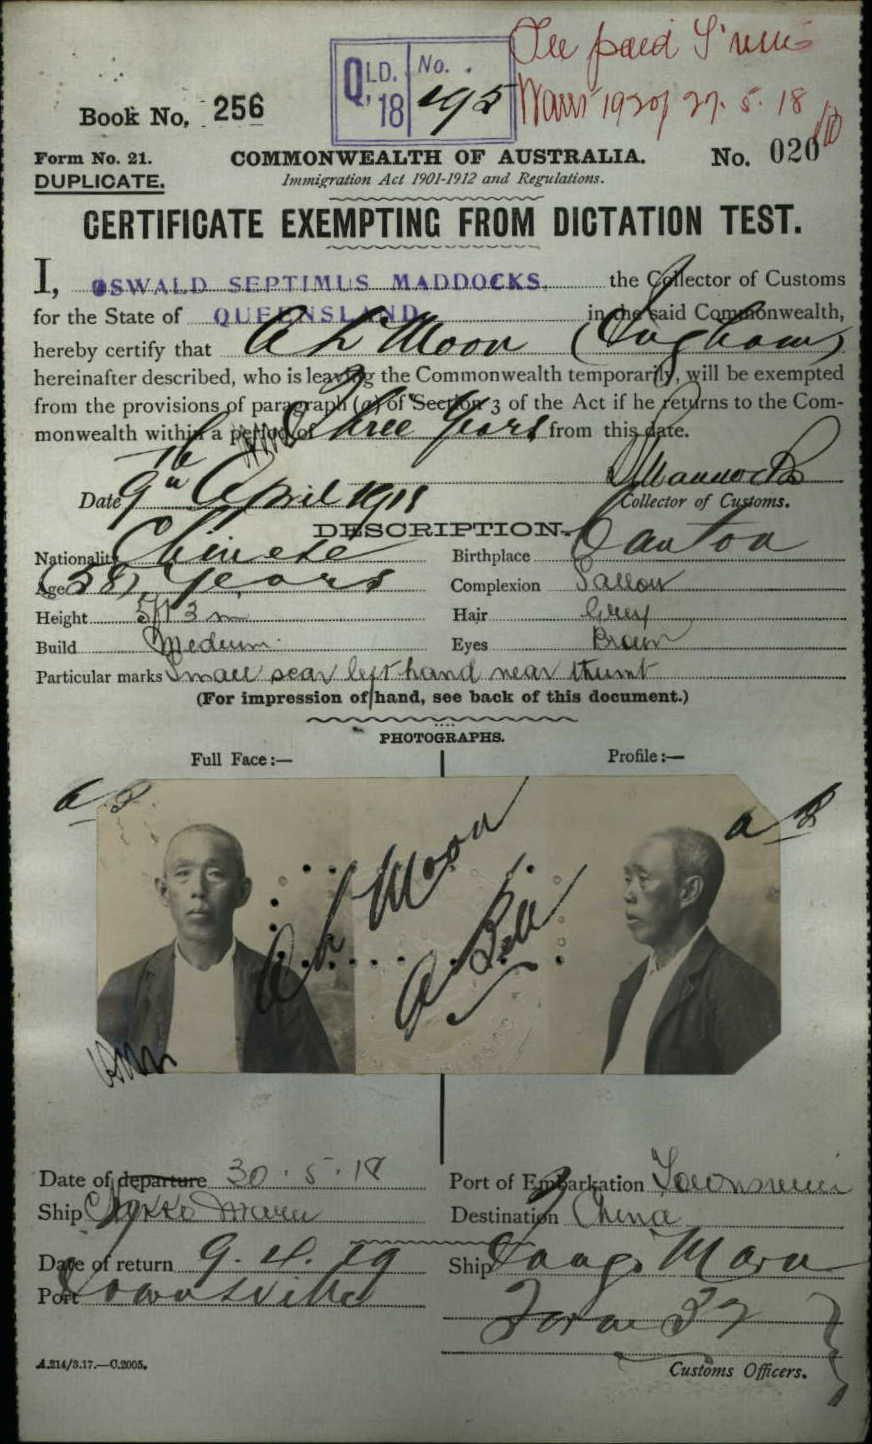 QLD. 18 No. 195
Fee paid T'ville
Warr 1920/ 27.5.18
Book No. 256
Form No. 21.
COMMONWEALTH OF AUSTRALIA.
No. 020
DUPLICATE.
Immigration Act 1901-1912 and Regulations.
CERTIFICATE EXEMPTING FROM DICTATION TEST.
I, OSWALD SEPTIMUS MADDOCKS, the Collector of Customs
for the State of QUEENSLAND in the said Commonwealth,
hereby certify that Ah Moon (Ingham)
hereinafter described, who is leaving the Commonwealth temporarily, will be exempted
from the provisions of paragraph (a) of Section 3 of the Act if he returns to the Com-
monwealth within a period of Three Years from this date.
Date 9th April 1918
Collector of Customs.
DESCRIPTION.
Nationality Chinese Birthplace Canton
Age (58) Years Complexion Sallow
Height 5ft 3 in Hair Grey
Build Medium Eyes Brown
Particular marks Small scar left hand near thumb
(For impression of hand, see back of this document.)
PHOTOGRAPHS.
Full Face:— Profile:—
Ah Moon
A Bell
Date of departure 30.5.18 Port of Embarkation Townsville
Ship Nikko Maru Destination China
Date of return 9.4.19 Ship Maru
Port Townsville Form 32
Customs Officers.
A.214/3.17.—C.2005.